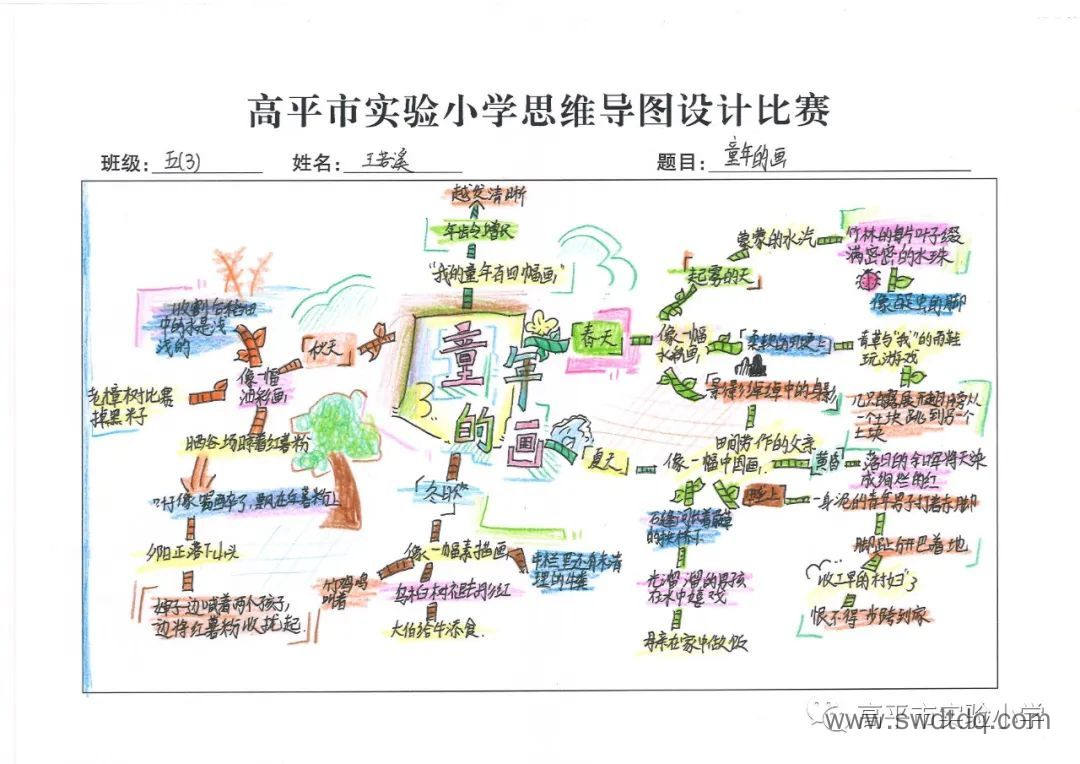 高平市实验小学思维导图设计比赛
班级: 五(3) 姓名: 王若溪 题目: 童年的画
越发清晰
年龄增长
"我的童年有四幅画"
童年的画
春天
像一幅
水粉画,
起雾的天
蒙蒙的水汽
竹林的每片叶子缀
满密密的水珠
柔软的田埂上
青草与"我"的雨鞋
玩游戏
几只
一个土块跳到另一个
土块
田间劳作的父亲
夏天
像一幅中国画,
黄昏
落日的余晖将天染
成绚烂的红
一身泥的青年男子打着赤脚
脚趾分开巴着地
收工早的村妇
恨不得一步跨到家
光溜溜的男孩
在水中嬉戏
母亲在家中做饭
冬日
像一幅素描画
牛栏里还有未清
理的牛粪
竹鸡鸣
叫着
大伯给牛添食.
伏天
像一幅
油彩画,
收割后稻田
中的水是浅
浅的
老樟树比赛
掉黑米子
晒谷场晾着红薯粉
夕阳正落下山头
婶子边喊着两个孩子,
边将红薯粉收拢起.
高平市实验小学
www.swdtdq.com